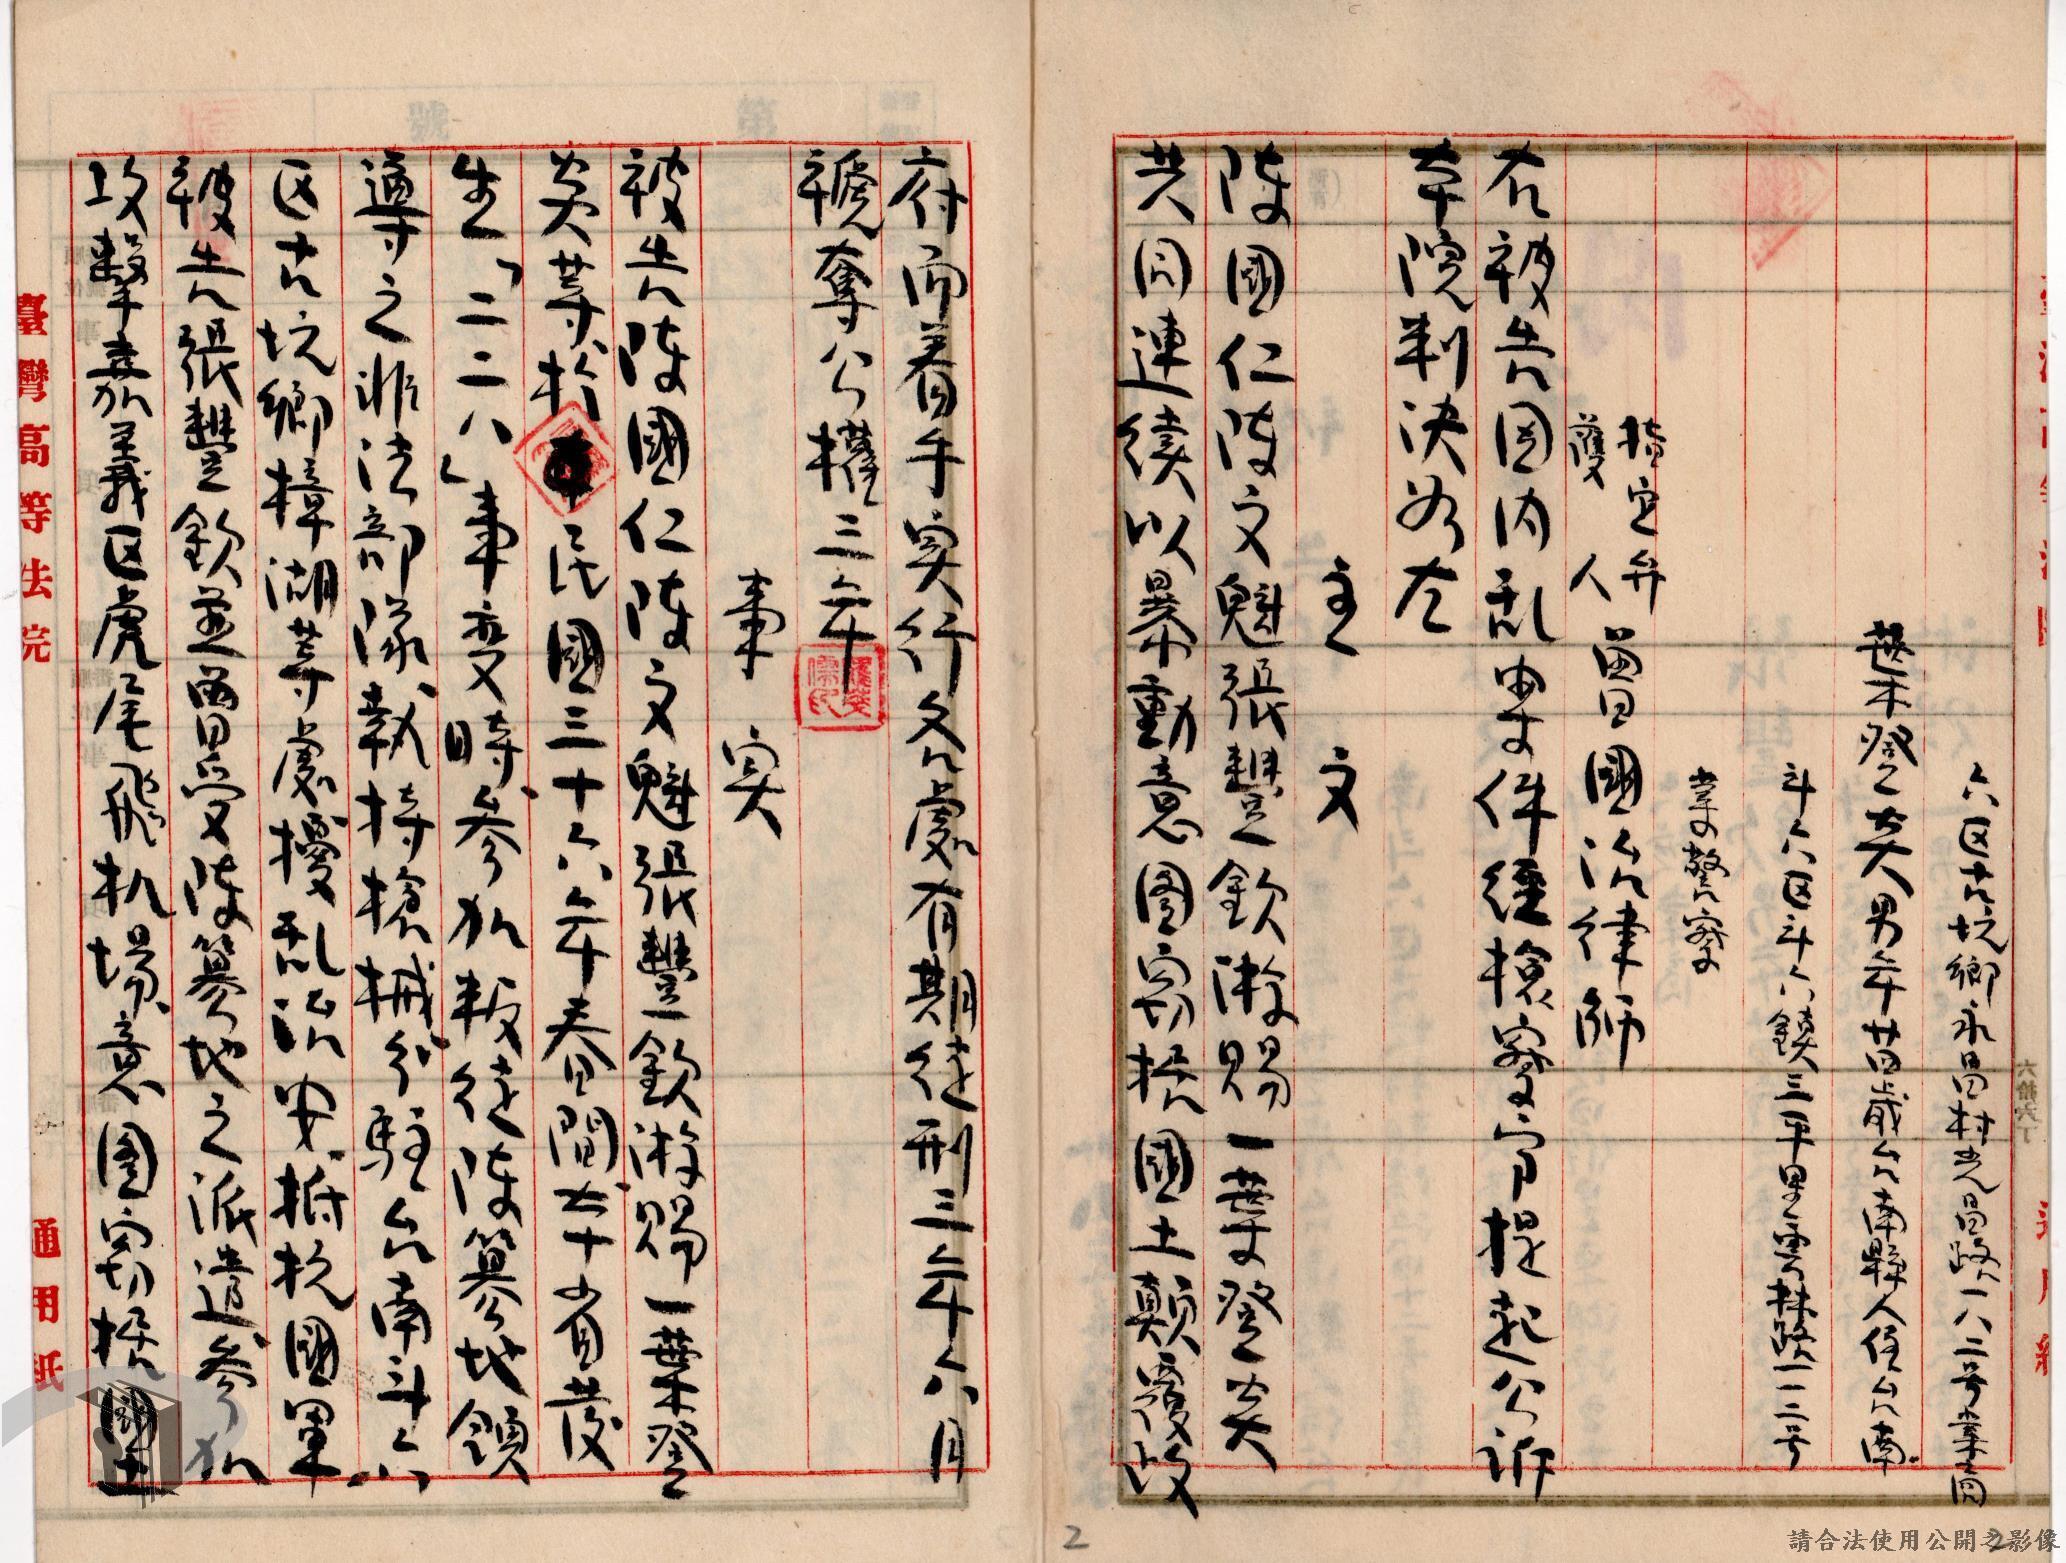 六区古坑鄉永昌村光昌路一八二号業商
葉登炎男年廿四歲台南縣人住台南
斗六区斗六鎮三平里雲林路一一二号
業警察
指定弁
護人 曾國治律師
右被告因内乱案件經檢察官提起公訴
本院判決如左
主文
陳國仁陳文魁張豐欽游賜一葉登炎
共同連續以暴動意圖窃據國土顛覆政
府而着手实行各處有期徒刑三年六月
褫奪公權三年
事实
被告陳國仁陳文魁張豐欽游賜一葉登
炎等於民國三十六年春間本省發
生「二二八」事变時参加叛徒陳篡地領
導之非法部隊執持槍械分駐台南斗六
区古坑鄉樟湖等處擾乱治安抵抗國軍
被告張豐欽並曾受陳篡地之派遣参加
攻擊嘉義区虎尾飛机場意圖窃據國土
臺灣高等法院
通用紙
六拾六丁
2
請合法使用公開之影像